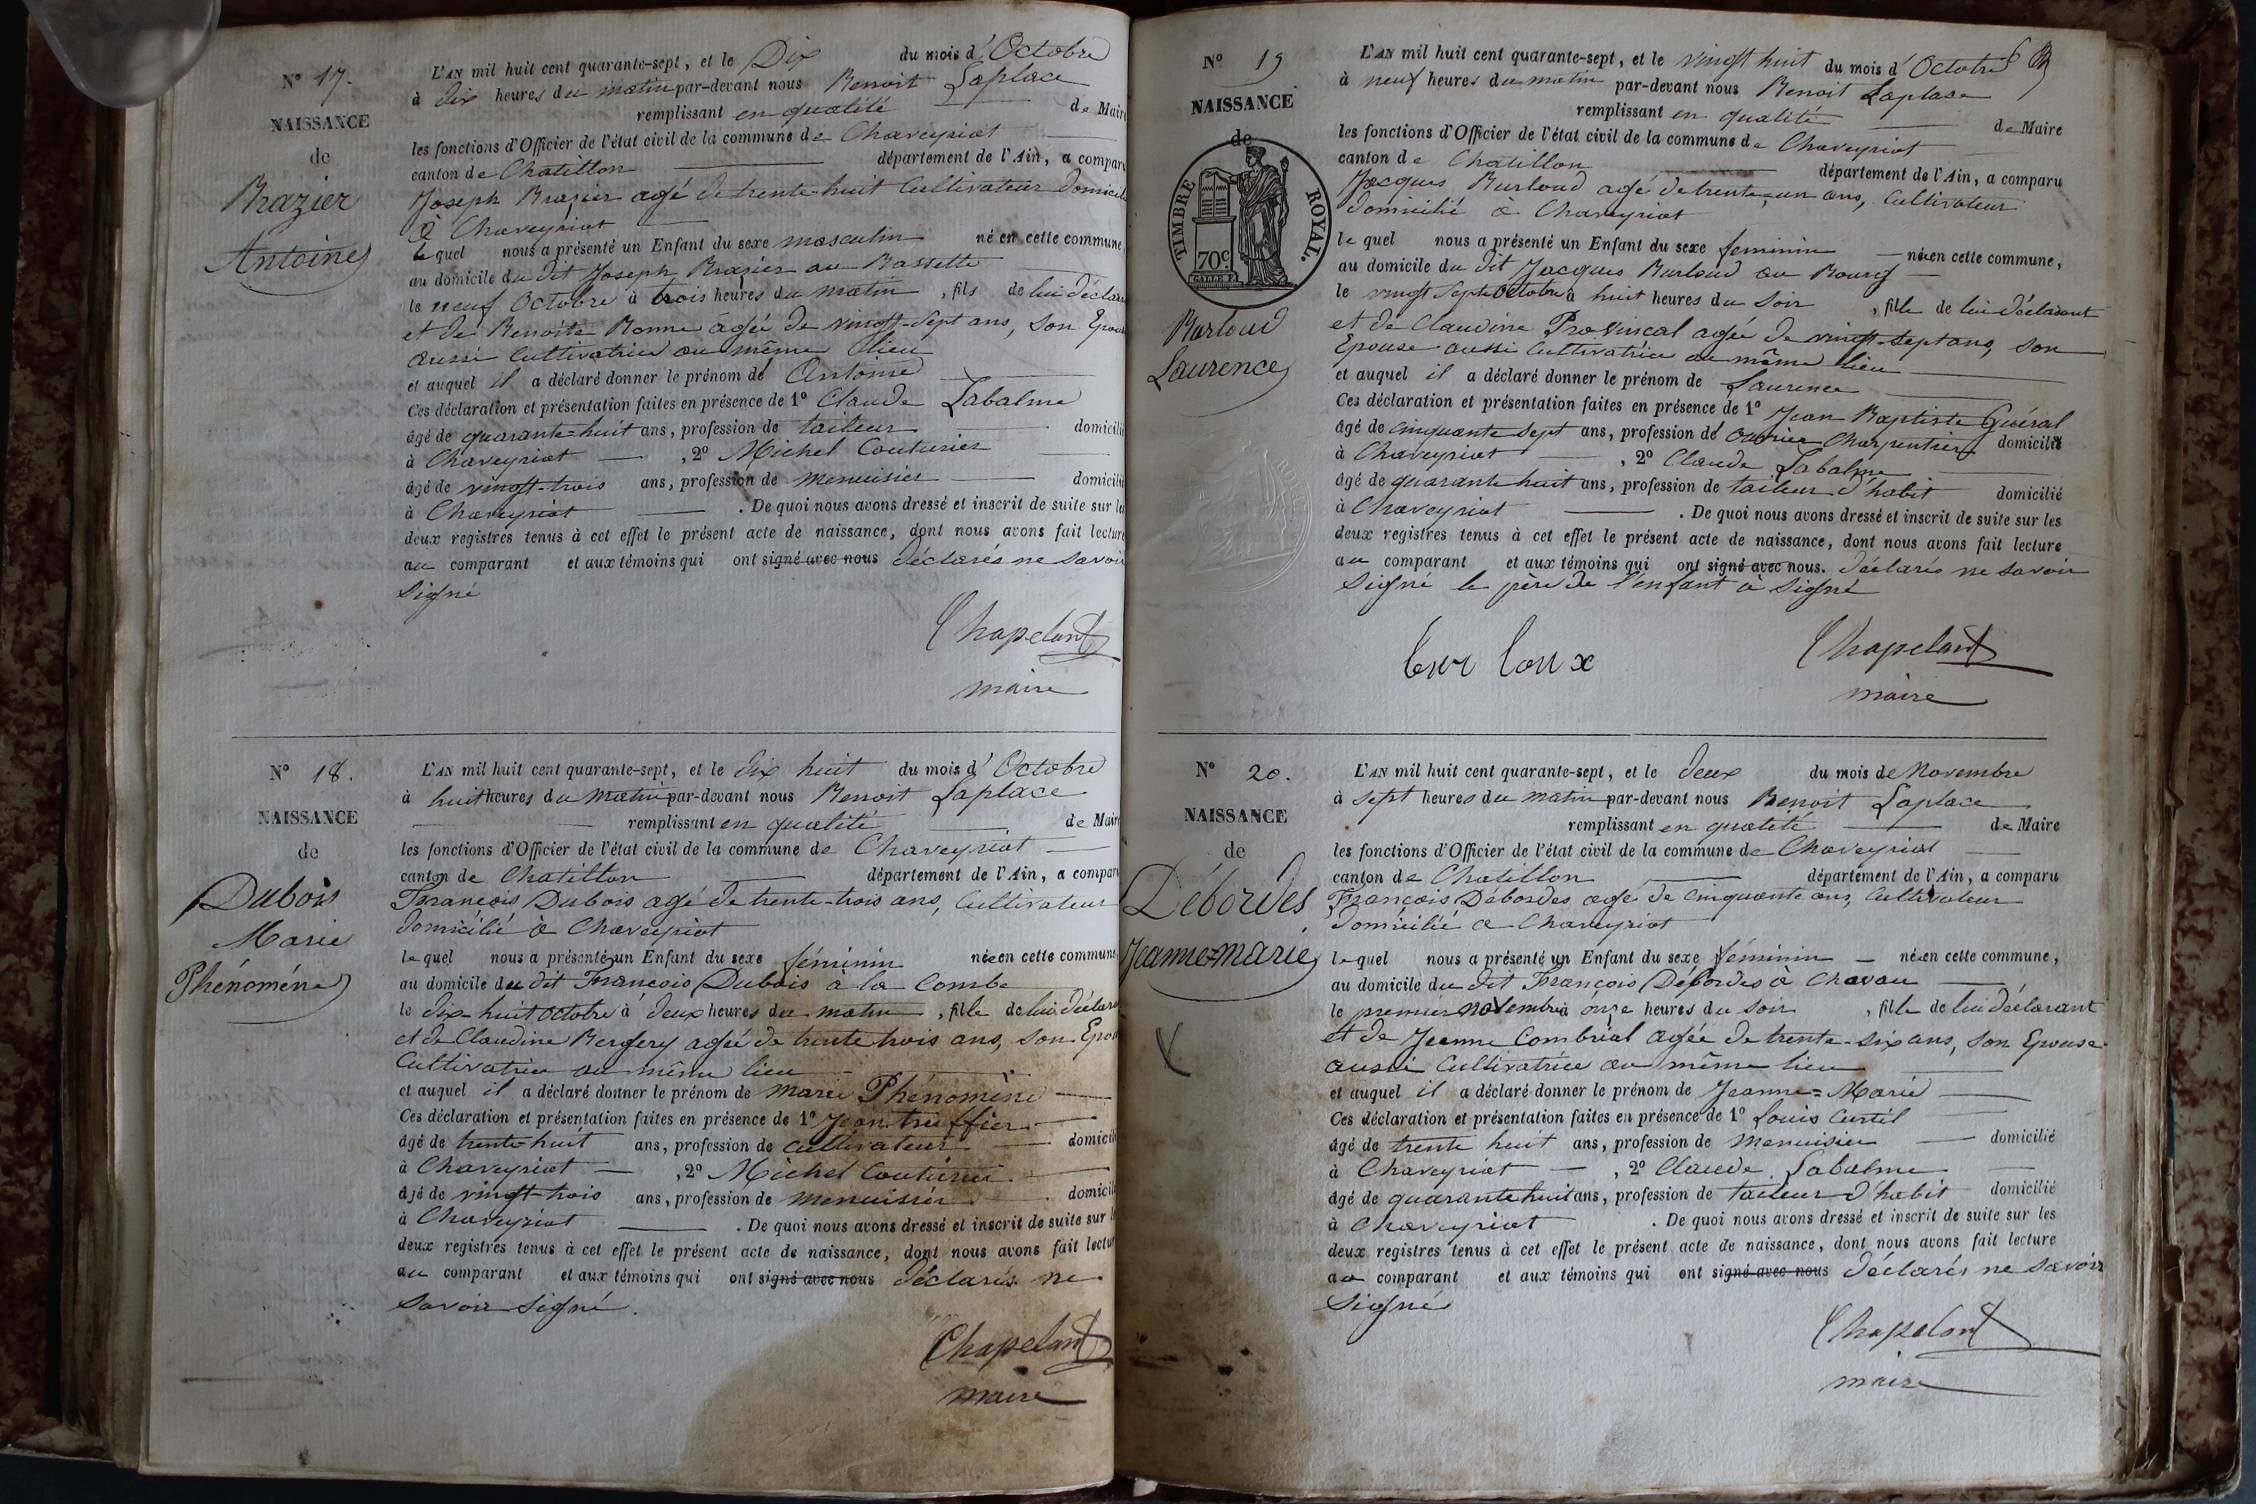 N° 17.
NAISSANCE
de
Brazier
Antoine
L'AN mil huit cent quarante-sept, et le Dix du mois d'Octobre
à dix heures du matin par-devant nous Benoit Laplace
remplissant en qualité de Maire
les fonctions d'Officier de l'état civil de la commune de Chaveyriat
canton de Chatillon département de l'Ain, a comparu
Joseph Brazier agé de trente-huit Cultivateur domicilié
à Chaveyriat
le quel nous a présenté un Enfant du sexe masculin né en cette commune,
au domicile du dit Joseph Brazier au Bassette
le neuf Octobre à trois heures du matin, fils de lui déclarant
et de Benoite Bonne agée de vingt-sept ans, son Epouse
aussi Cultivatrice au même lieu
et auquel il a déclaré donner le prénom de Antoine
Ces déclaration et présentation faites en présence de 1° Claude Labalme
âgé de quarante-huit ans, profession de tailleur domicilié
à Chaveyriat, 2° Michel Couturier
âgé de vingt-trois ans, profession de menuisier domicilié
à Chaveyriat. De quoi nous avons dressé et inscrit de suite sur les
deux registres tenus à cet effet le présent acte de naissance, dont nous avons fait lecture
au comparant et aux témoins qui ont signé avec nous déclarés ne savoir
signé
Chapeland
maire
N° 18.
NAISSANCE
de
Dubois
Marie
Phénoméne
L'AN mil huit cent quarante-sept, et le dix huit du mois d'Octobre
à huit heures du matin par-devant nous Benoit Laplace
remplissant en qualité de Maire
les fonctions d'Officier de l'état civil de la commune de Chaveyriat
canton de Chatillon département de l'Ain, a comparu
François Dubois agé de trente-trois ans, Cultivateur
domicilié à Chaveyriat
le quel nous a présenté un Enfant du sexe féminin née en cette commune,
au domicile du dit François Dubois à la Combe
le dix-huit Octobre à deux heures du matin, fille de lui déclarant
et de Claudine Bergery agée de trente trois ans, son Epouse
Cultivatrice au même lieu
et auquel il a déclaré donner le prénom de marie Phénoméne
Ces déclaration et présentation faites en présence de 1° Jean truffier
âgé de trente-huit ans, profession de cultivateur domicilié
à Chaveyriat, 2° Michel Couturier
âgé de vingt-trois ans, profession de menuisier domicilié
à Chaveyriat. De quoi nous avons dressé et inscrit de suite sur les
deux registres tenus à cet effet le présent acte de naissance, dont nous avons fait lecture
au comparant et aux témoins qui ont signé avec nous déclarés ne
savoir signé.
Chapeland
maire
N° 19
NAISSANCE
de
TIMBRE ROYAL.
70c.
Burloud
Laurence
L'AN mil huit cent quarante-sept, et le vingt huit du mois d'Octobre
à neuf heures du matin par-devant nous Benoit Laplace
remplissant en qualité de Maire
les fonctions d'Officier de l'état civil de la commune de Chaveyriat
canton de Chatillon département de l'Ain, a comparu
Jacques Burloud agé de trente-un ans, Cultivateur
domicilié à Chaveyriat
le quel nous a présenté un Enfant du sexe feminin née en cette commune,
au domicile du dit Jacques Burloud au Bourg
le vingt sept Octobre à huit heures du soir, fille de lui déclarant
et de Claudine Provincal agée de vingt-sept ans, son
Epouse aussi Cultivatrice au même lieu
et auquel il a déclaré donner le prénom de Laurence
Ces déclaration et présentation faites en présence de 1° Jean Baptiste Guéral
âgé de cinquante sept ans, profession de ouvrier Charpentier domicilié
à Chaveyriat, 2° Claude Labalme
âgé de quarante huit ans, profession de tailleur d'habit domicilié
à Chaveyriat. De quoi nous avons dressé et inscrit de suite sur les
deux registres tenus à cet effet le présent acte de naissance, dont nous avons fait lecture
au comparant et aux témoins qui ont signé avec nous. déclarés ne savoir
signé le père de l'enfant à signé
bur loux
Chapeland
maire
N° 20.
NAISSANCE
de
Débordes
Jeanne=marie
L'AN mil huit cent quarante-sept, et le deux du mois de Novembre
à sept heures du matin par-devant nous Benoit Laplace
remplissant en qualité de Maire
les fonctions d'Officier de l'état civil de la commune de Chaveyriat
canton de Chatillon département de l'Ain, a comparu
François Débordes agé de cinquante ans, Cultivateur
domicilié à Chaveyriat
le quel nous a présenté un Enfant du sexe féminin née en cette commune,
au domicile du dit François Débordes à Chavau
le premier novembre à onze heures du soir, fille de lui déclarant
et de Jeanne Combréal agée de trente-six ans, son Epouse
aussi Cultivatrice au même lieu
et auquel il a déclaré donner le prénom de Jeanne=Marie
Ces déclaration et présentation faites en présence de 1° Louis Curtil
âgé de trente huit ans, profession de menuisier domicilié
à Chaveyriat, 2° Claude Labalme
âgé de quarante huit ans, profession de tailleur d'habit domicilié
à Chaveyriat. De quoi nous avons dressé et inscrit de suite sur les
deux registres tenus à cet effet le présent acte de naissance, dont nous avons fait lecture
au comparant et aux témoins qui ont signé avec nous déclarés ne savoir
signé
Chapeland
maire